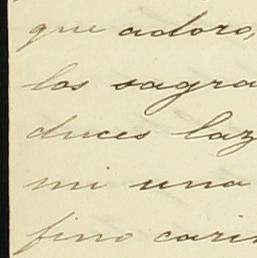 que adoro,
los sagra
duces laz
mi una
fino cari